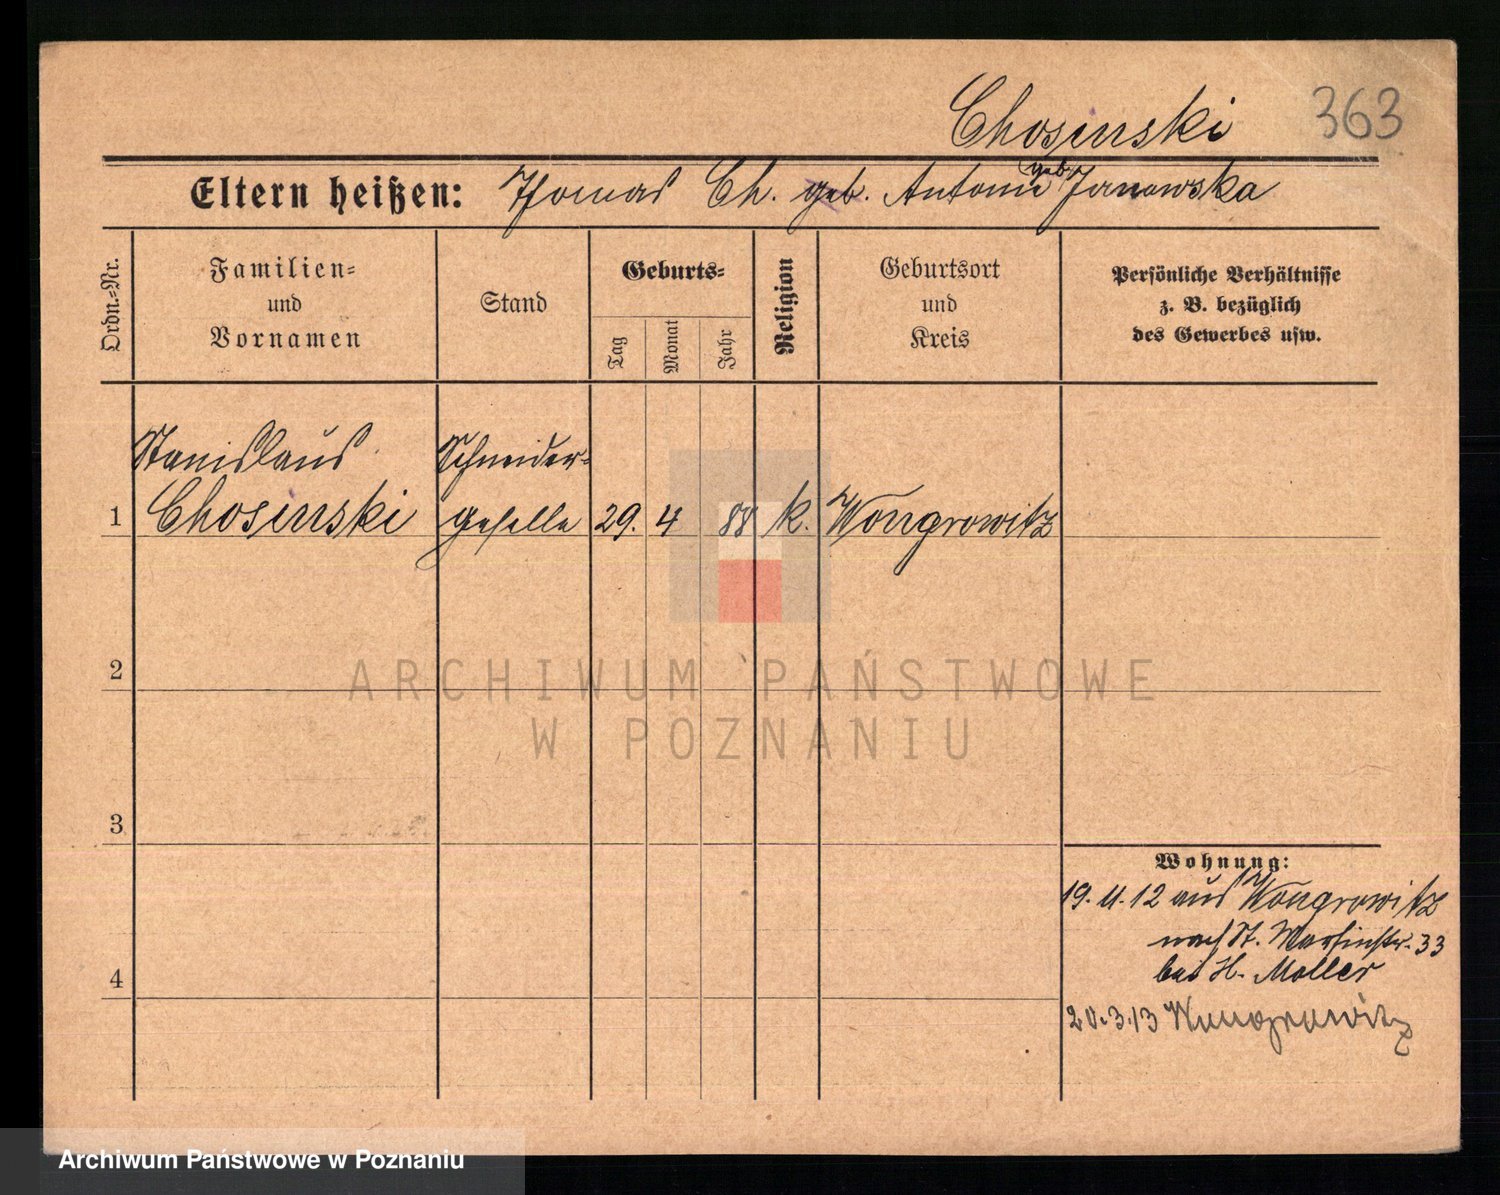 Chosinski 363
Eltern heißen: Thomas Ch. geb. Antonie geb. Janowska
Ordn.=Nr.
Familien=
und
Vornamen
Stand
Geburts=
Tag
Monat
Jahr
Religion
Geburtsort
und
Kreis
Persönliche Verhältnisse
z. B. bezüglich
des Gewerbes usw.
Stanislaus Schneider-
1 Chosinski geselle 29. 4 88 k. Wongrowitz
2
ARCHIWUM PAŃSTWOWE
W POZNANIU
3
Wohnung:
19. 11. 12 aus Wongrowitz
nach St. Martinstr. 33
4 bei H. Moller
20.3.13 Wongrowitz
Archiwum Państwowe w Poznaniu